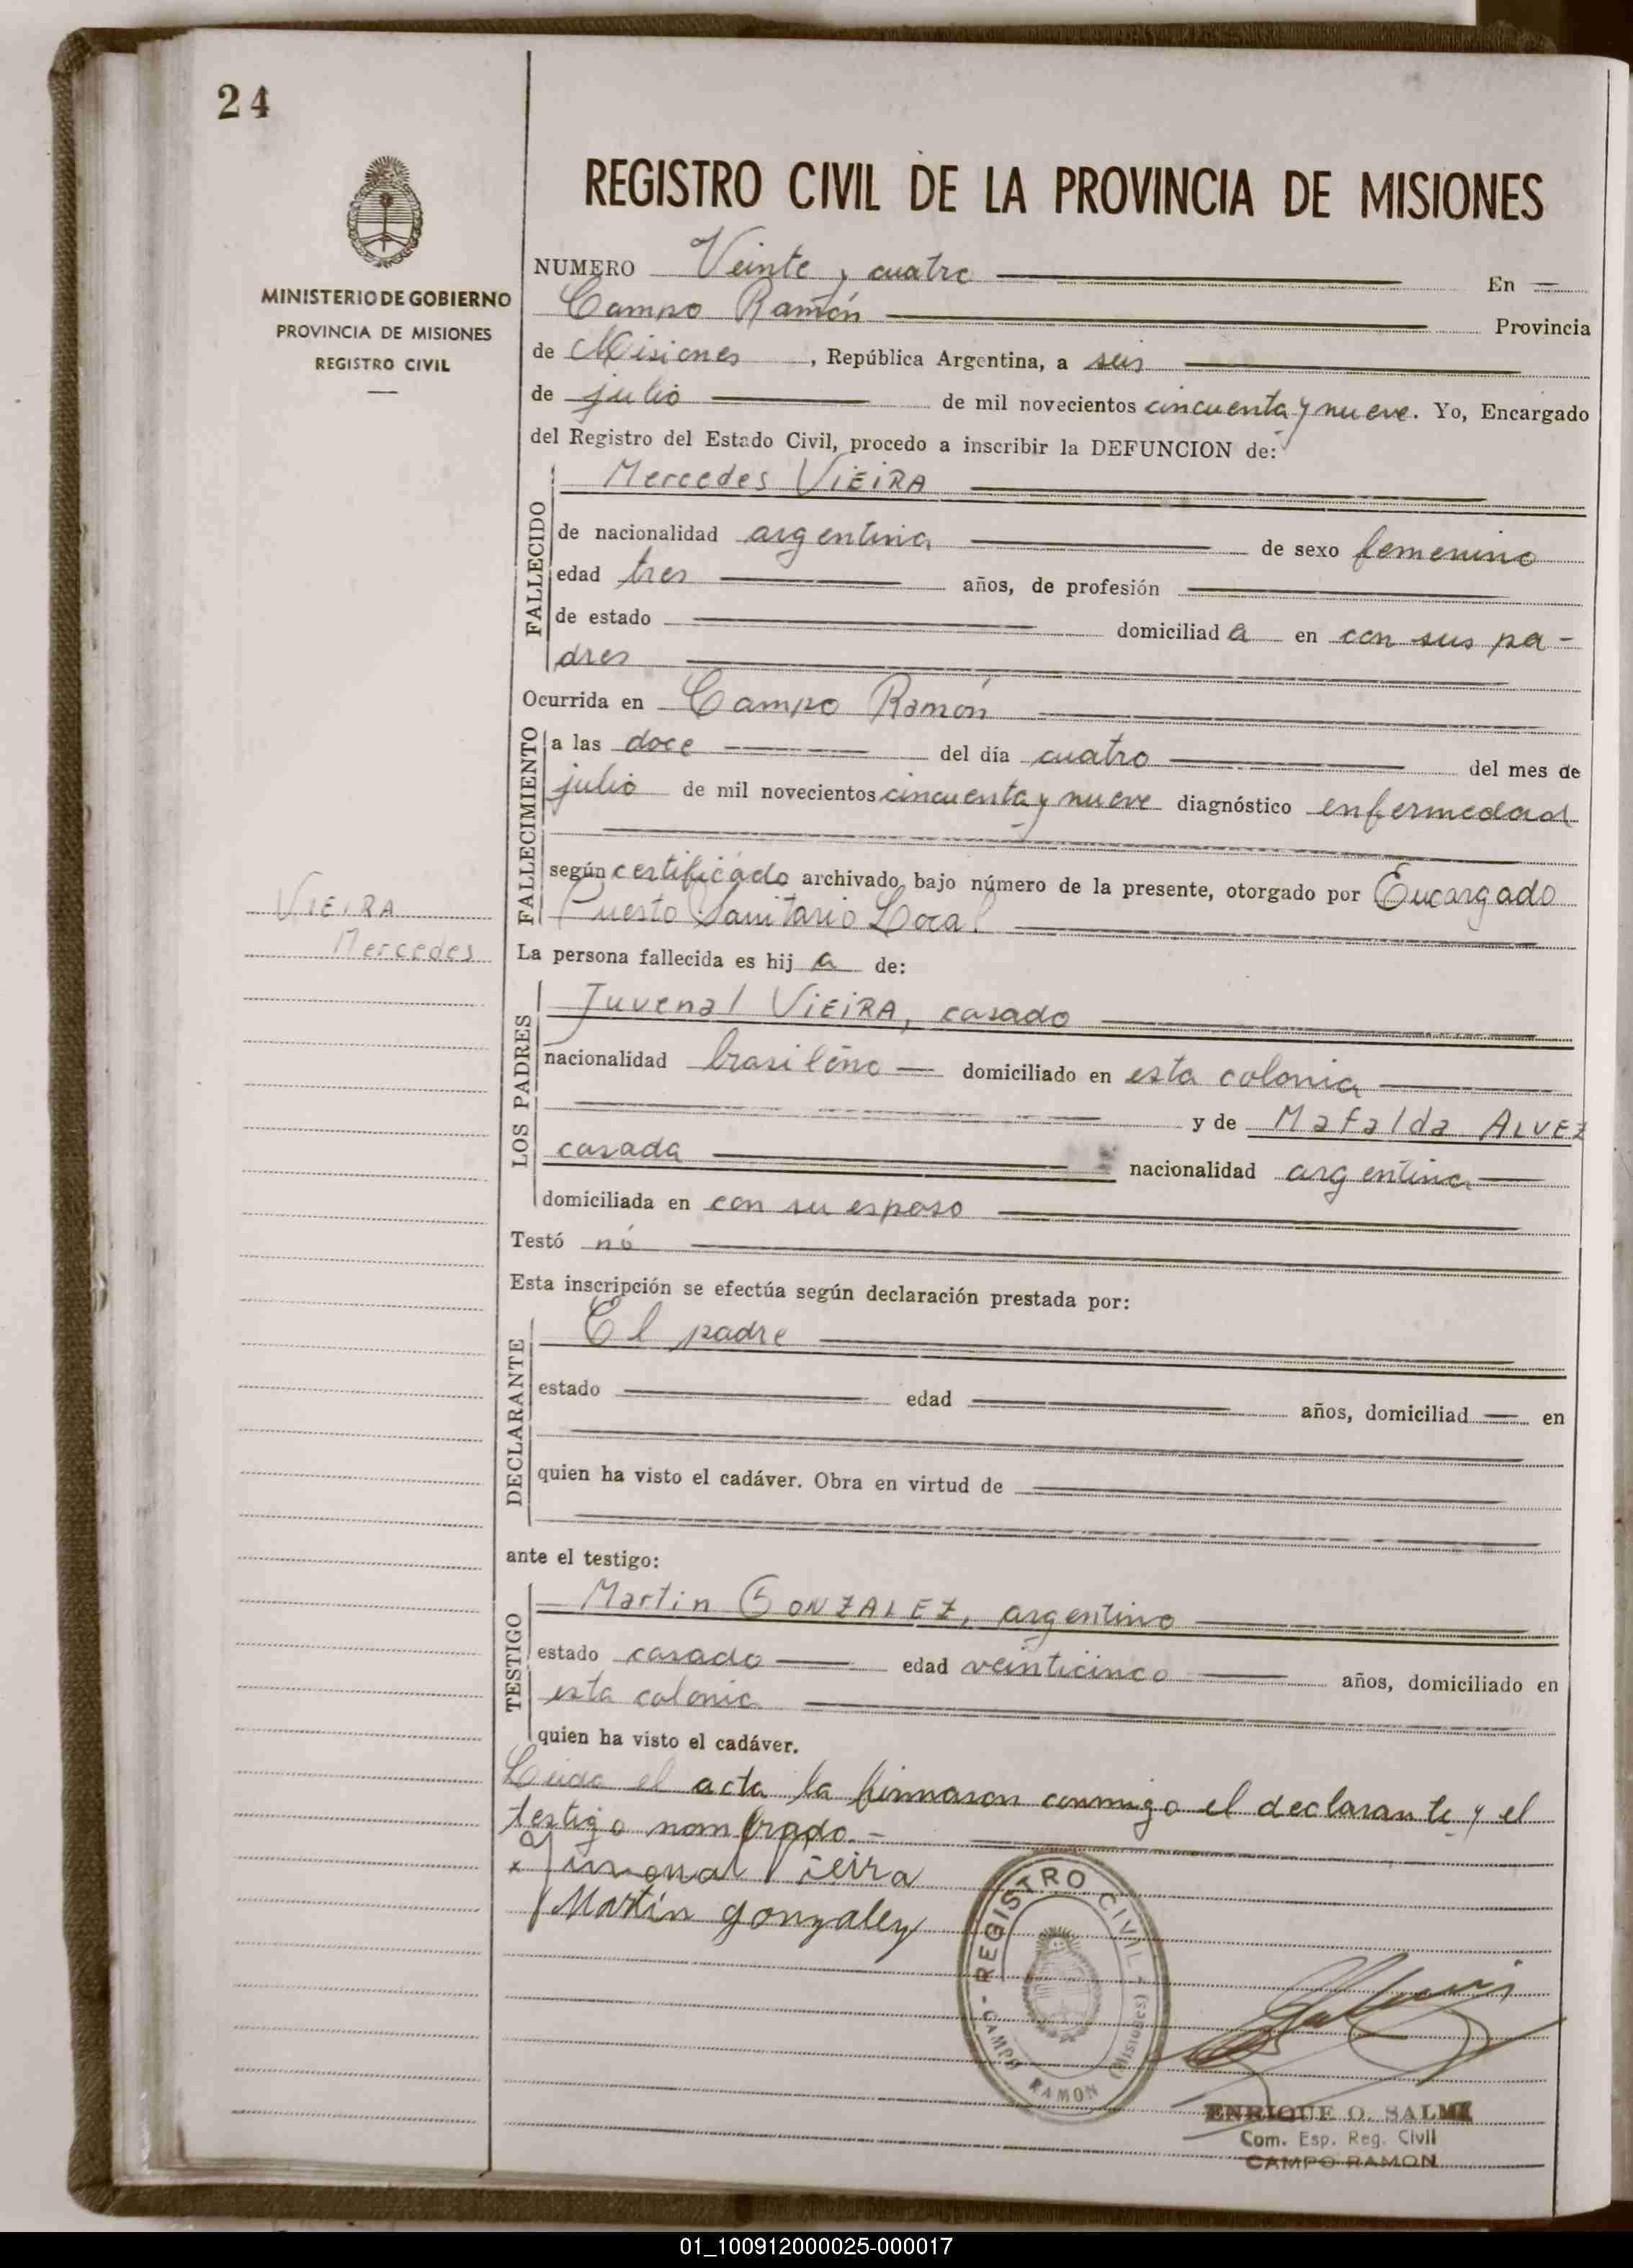 24
REGISTRO CIVIL DE LA PROVINCIA DE MISIONES
MINISTERIO DE GOBIERNO
PROVINCIA DE MISIONES
REGISTRO CIVIL
NUMERO Veinte y cuatro En
Campo Ramón Provincia
de Misiones, República Argentina, a seis
de julio de mil novecientos cincuenta y nueve. Yo, Encargado
del Registro del Estado Civil, procedo a inscribir la DEFUNCION de:
FALLECIDO
Mercedes VIEIRA
de nacionalidad argentina de sexo femenino
edad tres años, de profesión
de estado domiciliad a en con sus pa-
dres
Ocurrida en Campo Ramón
FALLECIMIENTO
a las doce del día cuatro del mes de
julio de mil novecientos cincuenta y nueve diagnóstico enfermedad
según certificado archivado bajo número de la presente, otorgado por Encargado
Puesto Sanitario Local
VIEIRA
Mercedes
La persona fallecida es hij a de:
LOS PADRES
Juvenal VIEIRA, casado
nacionalidad brasileño domiciliado en esta colonia
y de Mafalda ALVEZ
casada nacionalidad argentina
domiciliada en con su esposo
Testó nó
Esta inscripción se efectúa según declaración prestada por:
DECLARANTE
El padre
estado edad años, domiciliad en
quien ha visto el cadáver. Obra en virtud de
ante el testigo:
TESTIGO
Martin GONZALEZ, argentino
estado casado edad veinticinco años, domiciliado en
esta colonia
quien ha visto el cadáver.
Leida el acta la firmaron conmigo el declarante y el
testigo nombrado.-
x Juvenal Vieira
Martín gonzalez
REGISTRO CIVIL - CAMPO RAMON (Misiones)
ENRIQUE O. SALMI
Com. Esp. Reg. Civil
CAMPO RAMON
01_100912000025-000017